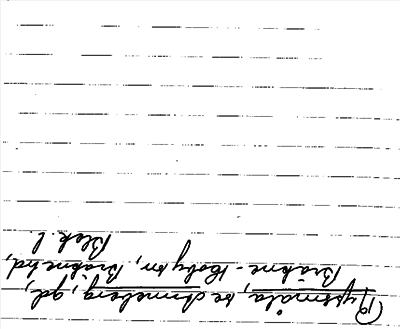 se Anneberg, gd,
Bräkne-Hoby sn, Bräkne hd,
Blek. l.